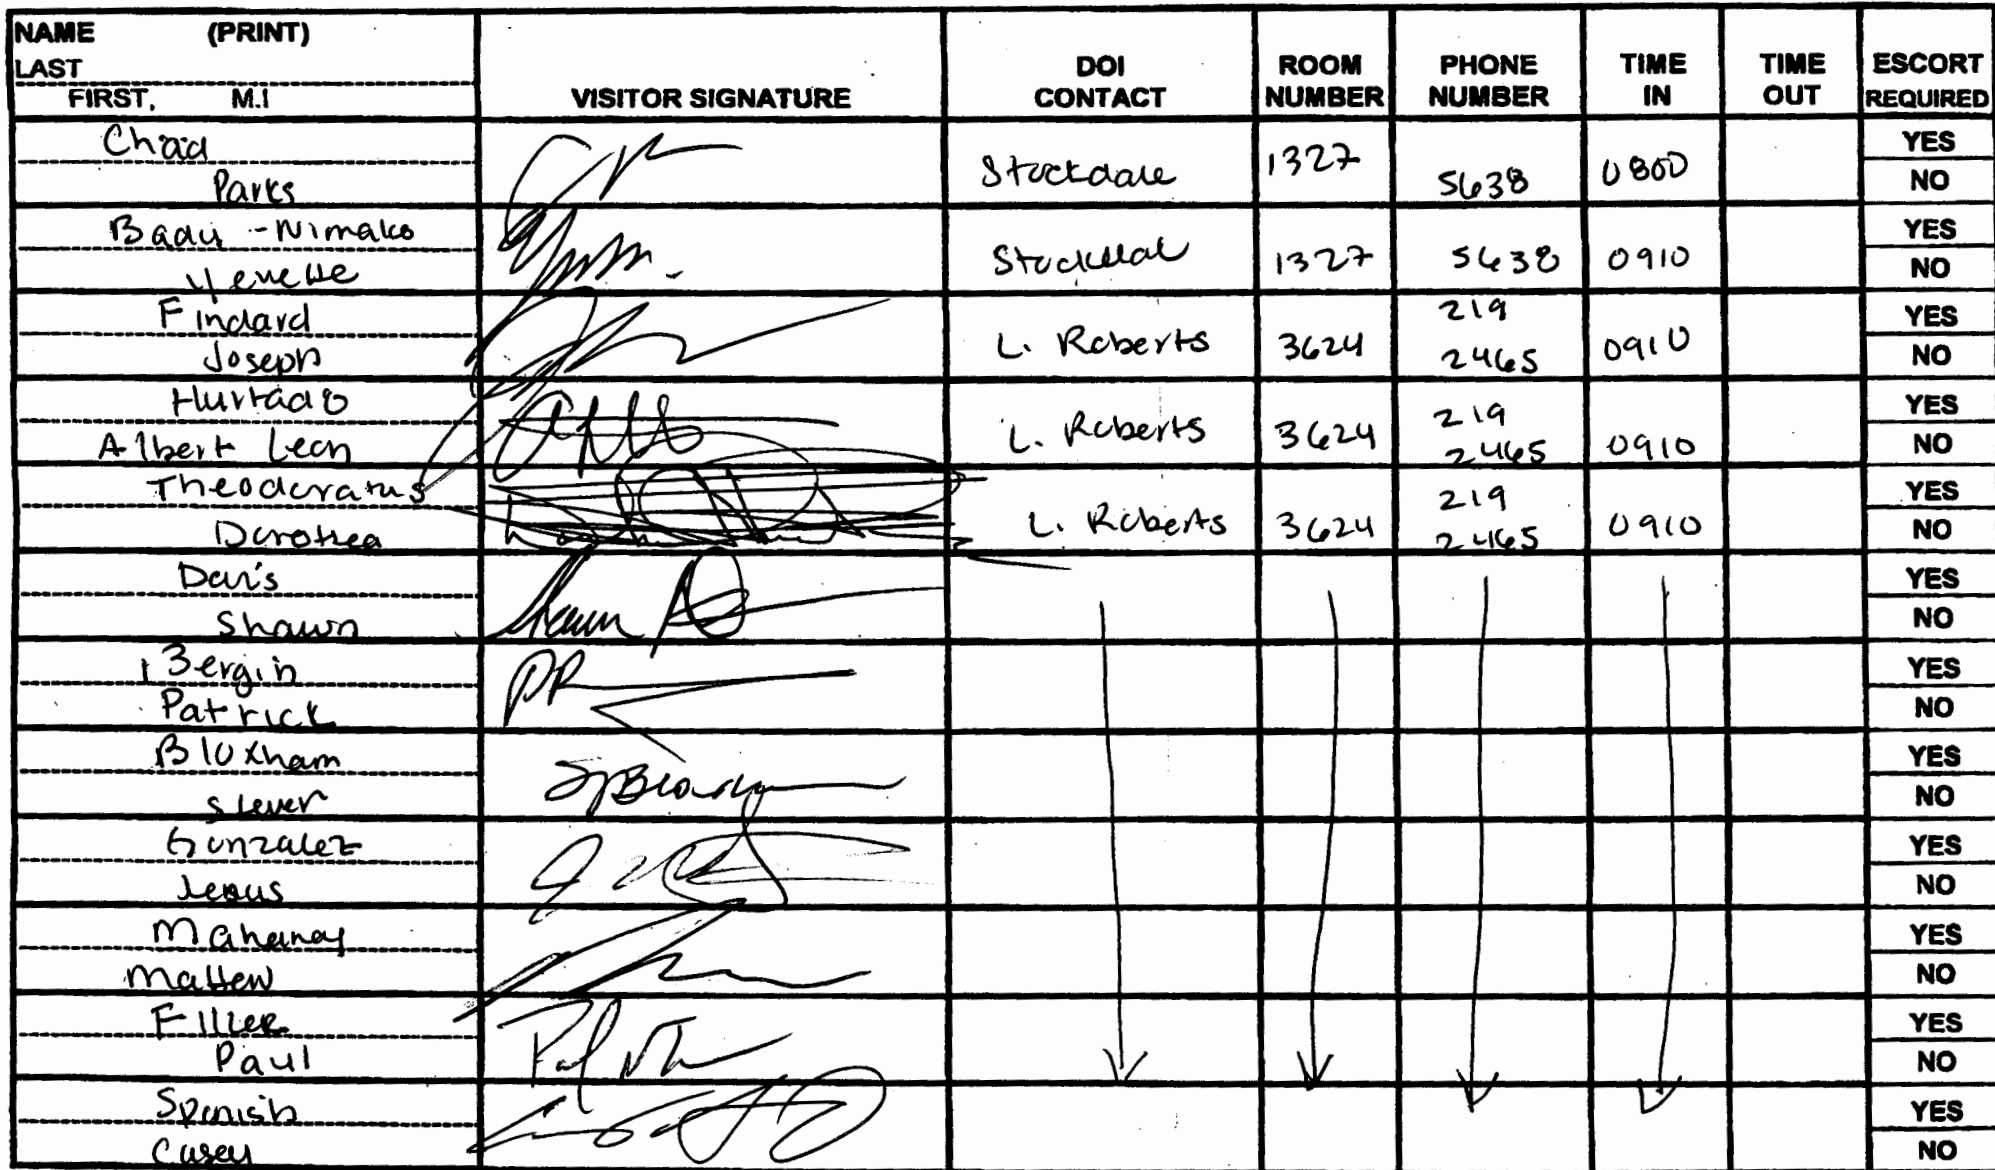 NAME (PRINT)
LAST
FIRST, M.I
VISITOR SIGNATURE
DOI CONTACT
ROOM NUMBER
PHONE NUMBER
TIME IN
TIME OUT
ESCORT REQUIRED
Chad
Parks
Stockdale 1327 5638 0800
YES
NO
Badu-Nimako
Stockdal 1327 5638 0910
YES
NO
Findard
Joseph
L. Roberts 3624 219 2465 0910
YES
NO
Hurtado
Albert Leon
L. Roberts 3624 219 2465 0910
YES
NO
Theodoratus
Dorothea
L. Roberts 3624 219 2465 0910
YES
NO
Davis
Shawn
YES
NO
Bergin
Patrick
YES
NO
Bloxham
YES
NO
Gonzalez
Jesus
YES
NO
Mahaney
Mattew
YES
NO
Filler
Paul
YES
NO
Spanish
Casey
YES
NO